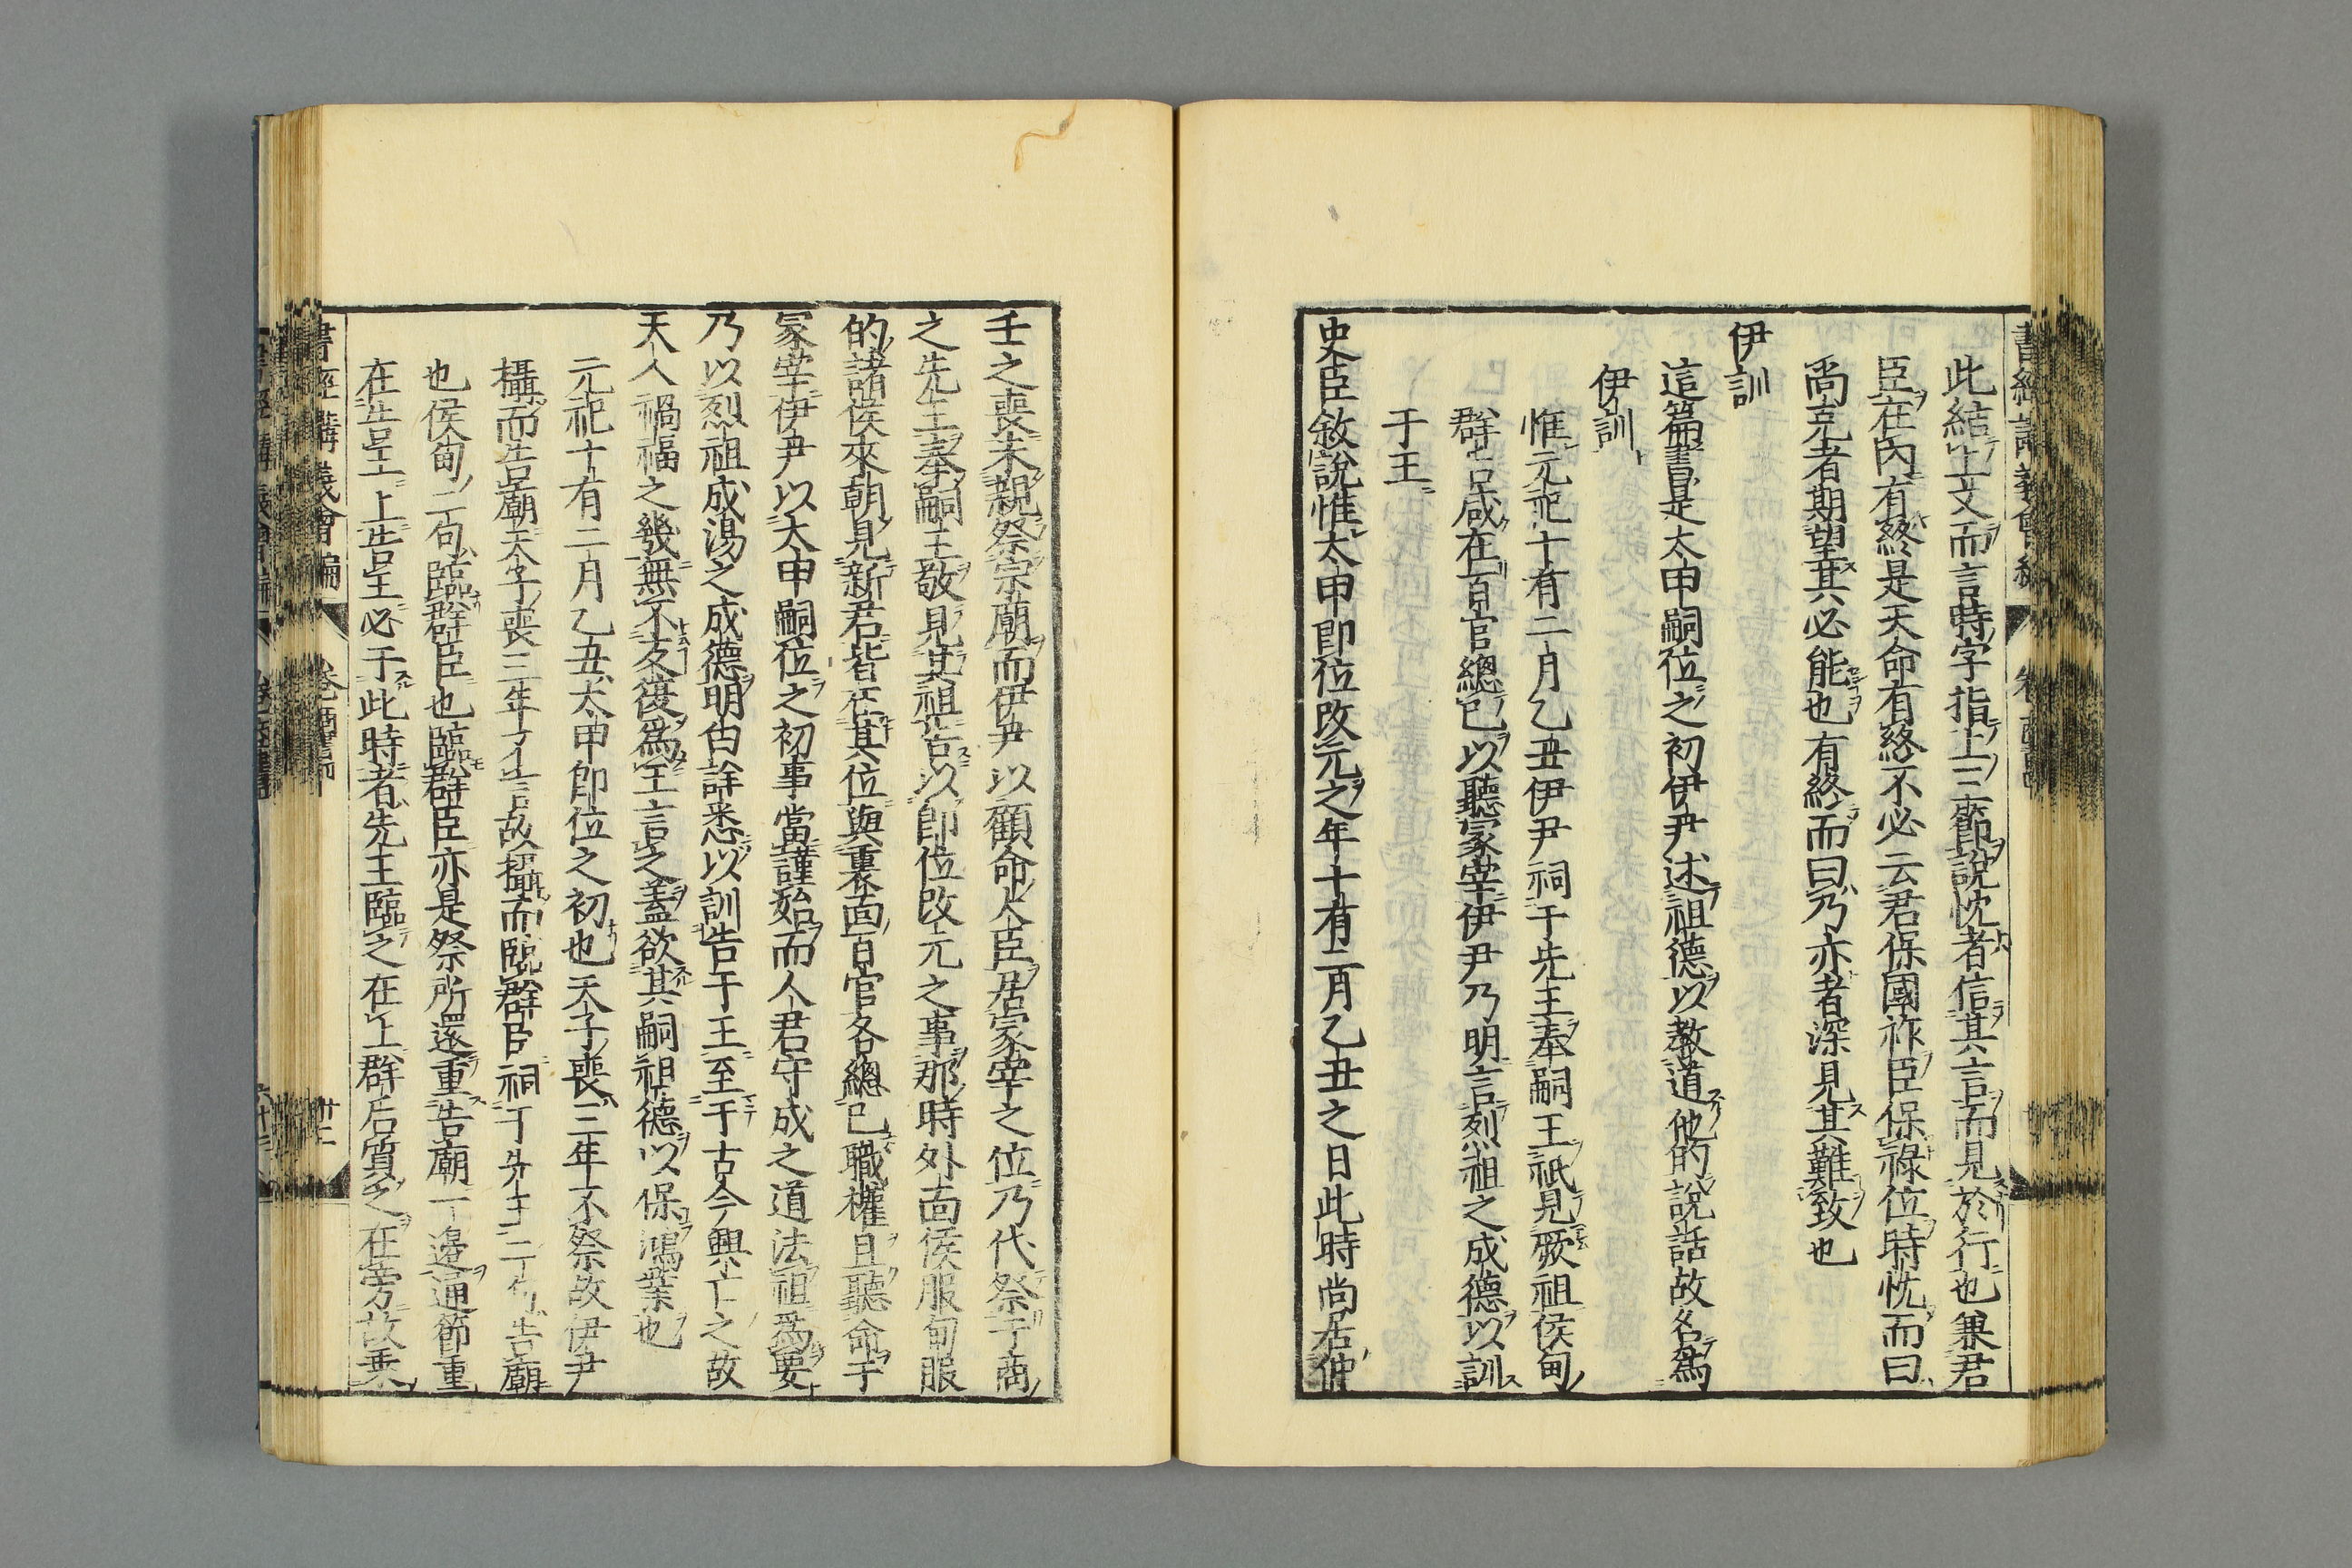 此結上文而言時字指上三節說忱者信其言而見於行也兼君
臣在內有終是天命有終不必云君保國祚臣保祿位時忱而曰
尚克者期望其必能也有終而曰乃亦者深見其難致也
伊訓
這篇書是太甲嗣位之初伊尹述祖德以教道他的說話故名爲
伊訓
惟元祀十有二月乙丑伊尹祠于先王奉嗣王祇見厥祖侯甸
群后咸在百官總已以聽冢宰伊尹乃明言烈祖之成德以訓
于王
史臣敘說惟太甲即位改元之年十有二月乙丑之日此時尚居仲
壬之喪未親祭宗廟而伊尹以顧命大臣居冢宰之位乃代祭于商
之先王奉嗣王敬見其祖告以即位改元之事那時外面侯服甸服
的諸侯來朝見新君皆在其位與裏面百官各總已職權且聽命于
冢宰伊尹以太甲嗣位之初事當謹始而人君守成之道法祖爲要
乃以烈祖成湯之成德明白詳悉以訓告于王至于古今興亡之故
天人禍福之幾無不反復爲王言之蓋欲其嗣祖德以保鴻業也
元祀十有二月乙丑太甲即位之初也天子喪三年不祭故伊尹
攝而告廟天子喪三年不言故攝而臨群臣祠于先王二句告廟
也侯甸二句臨群臣也臨群臣亦是祭所還重告廟一邊通節重
在告王上告王必于此時者先王臨之在上群后質之在旁故乘
書經講義會編
卷 商書
廿二